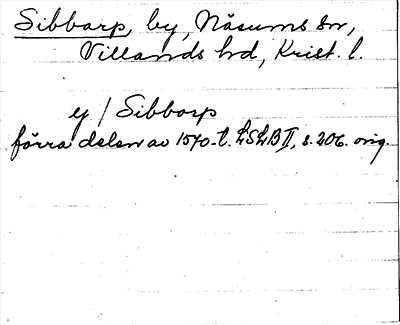 Sibbarp, by, Näsums sn,
Villands hd, Krist. l.
ej / Sibborp
förra delen av 1570-t. LSLB II, s. 206. orig.